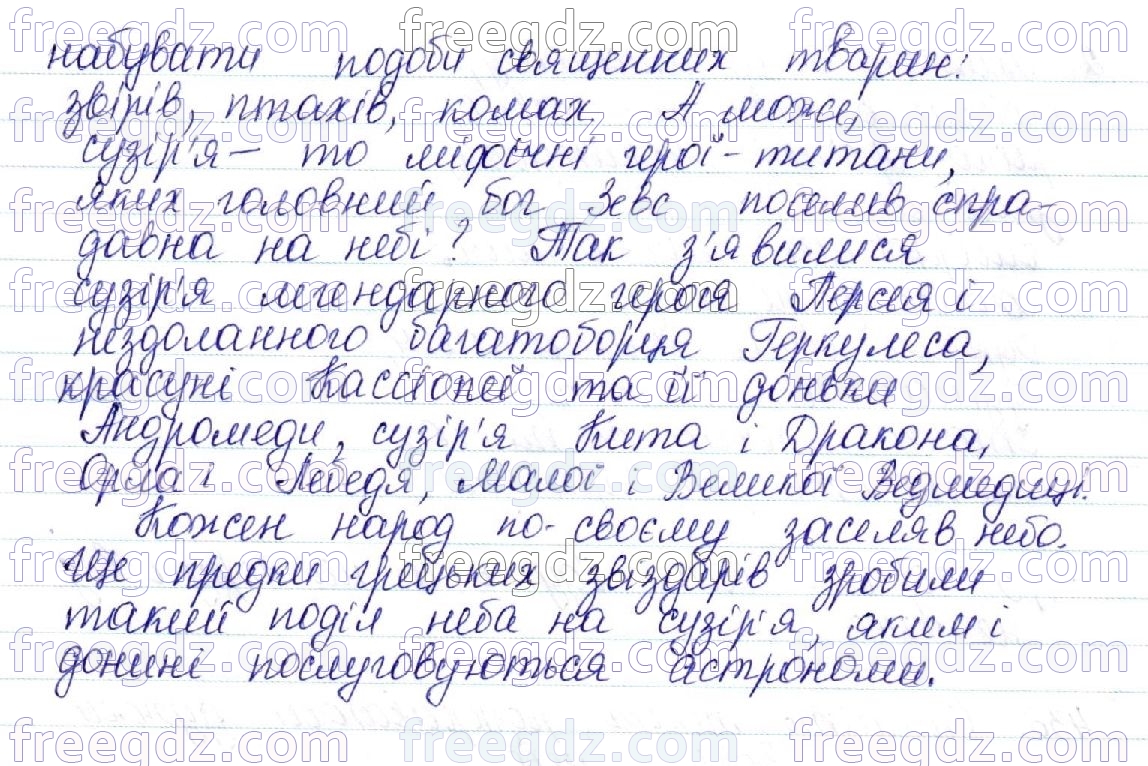 набувати подоби священних тварин:
звірів, птахів, комах. А може,
сузір'я – то міфічні герої - титани,
яких головний бог Зевс поселив спра-
давна на небі? Так з'явилися
сузір'я легендарного героя Персея і
нездоланного багатоборця Геркулеса,
красуні Кассіопеї та її доньки
Андромеди, сузір'я Кита і Дракона,
Орла і Лебедя, Малої і Великої Ведмедиці.
Кожен народ по-своєму заселяв небо.
Ще предки грецьких звіздарів зробили
такий поділ неба на сузір'я, яким і
донині послуговуються астрономи.
freegdz.com